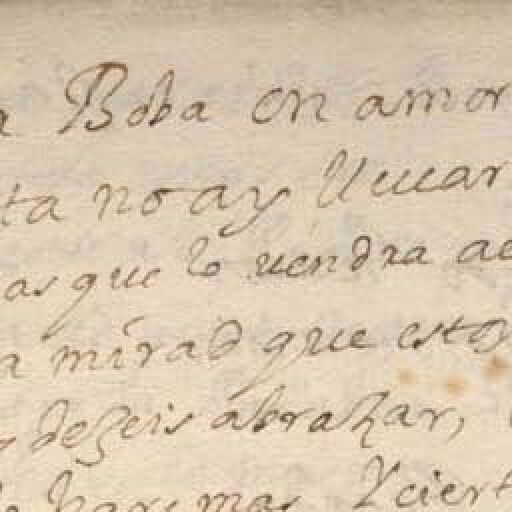 a Boba en amor
ta no ay lleuar
as que lo uendra a
a mirad que estoy
dezeis abrazar,
mas Yciert